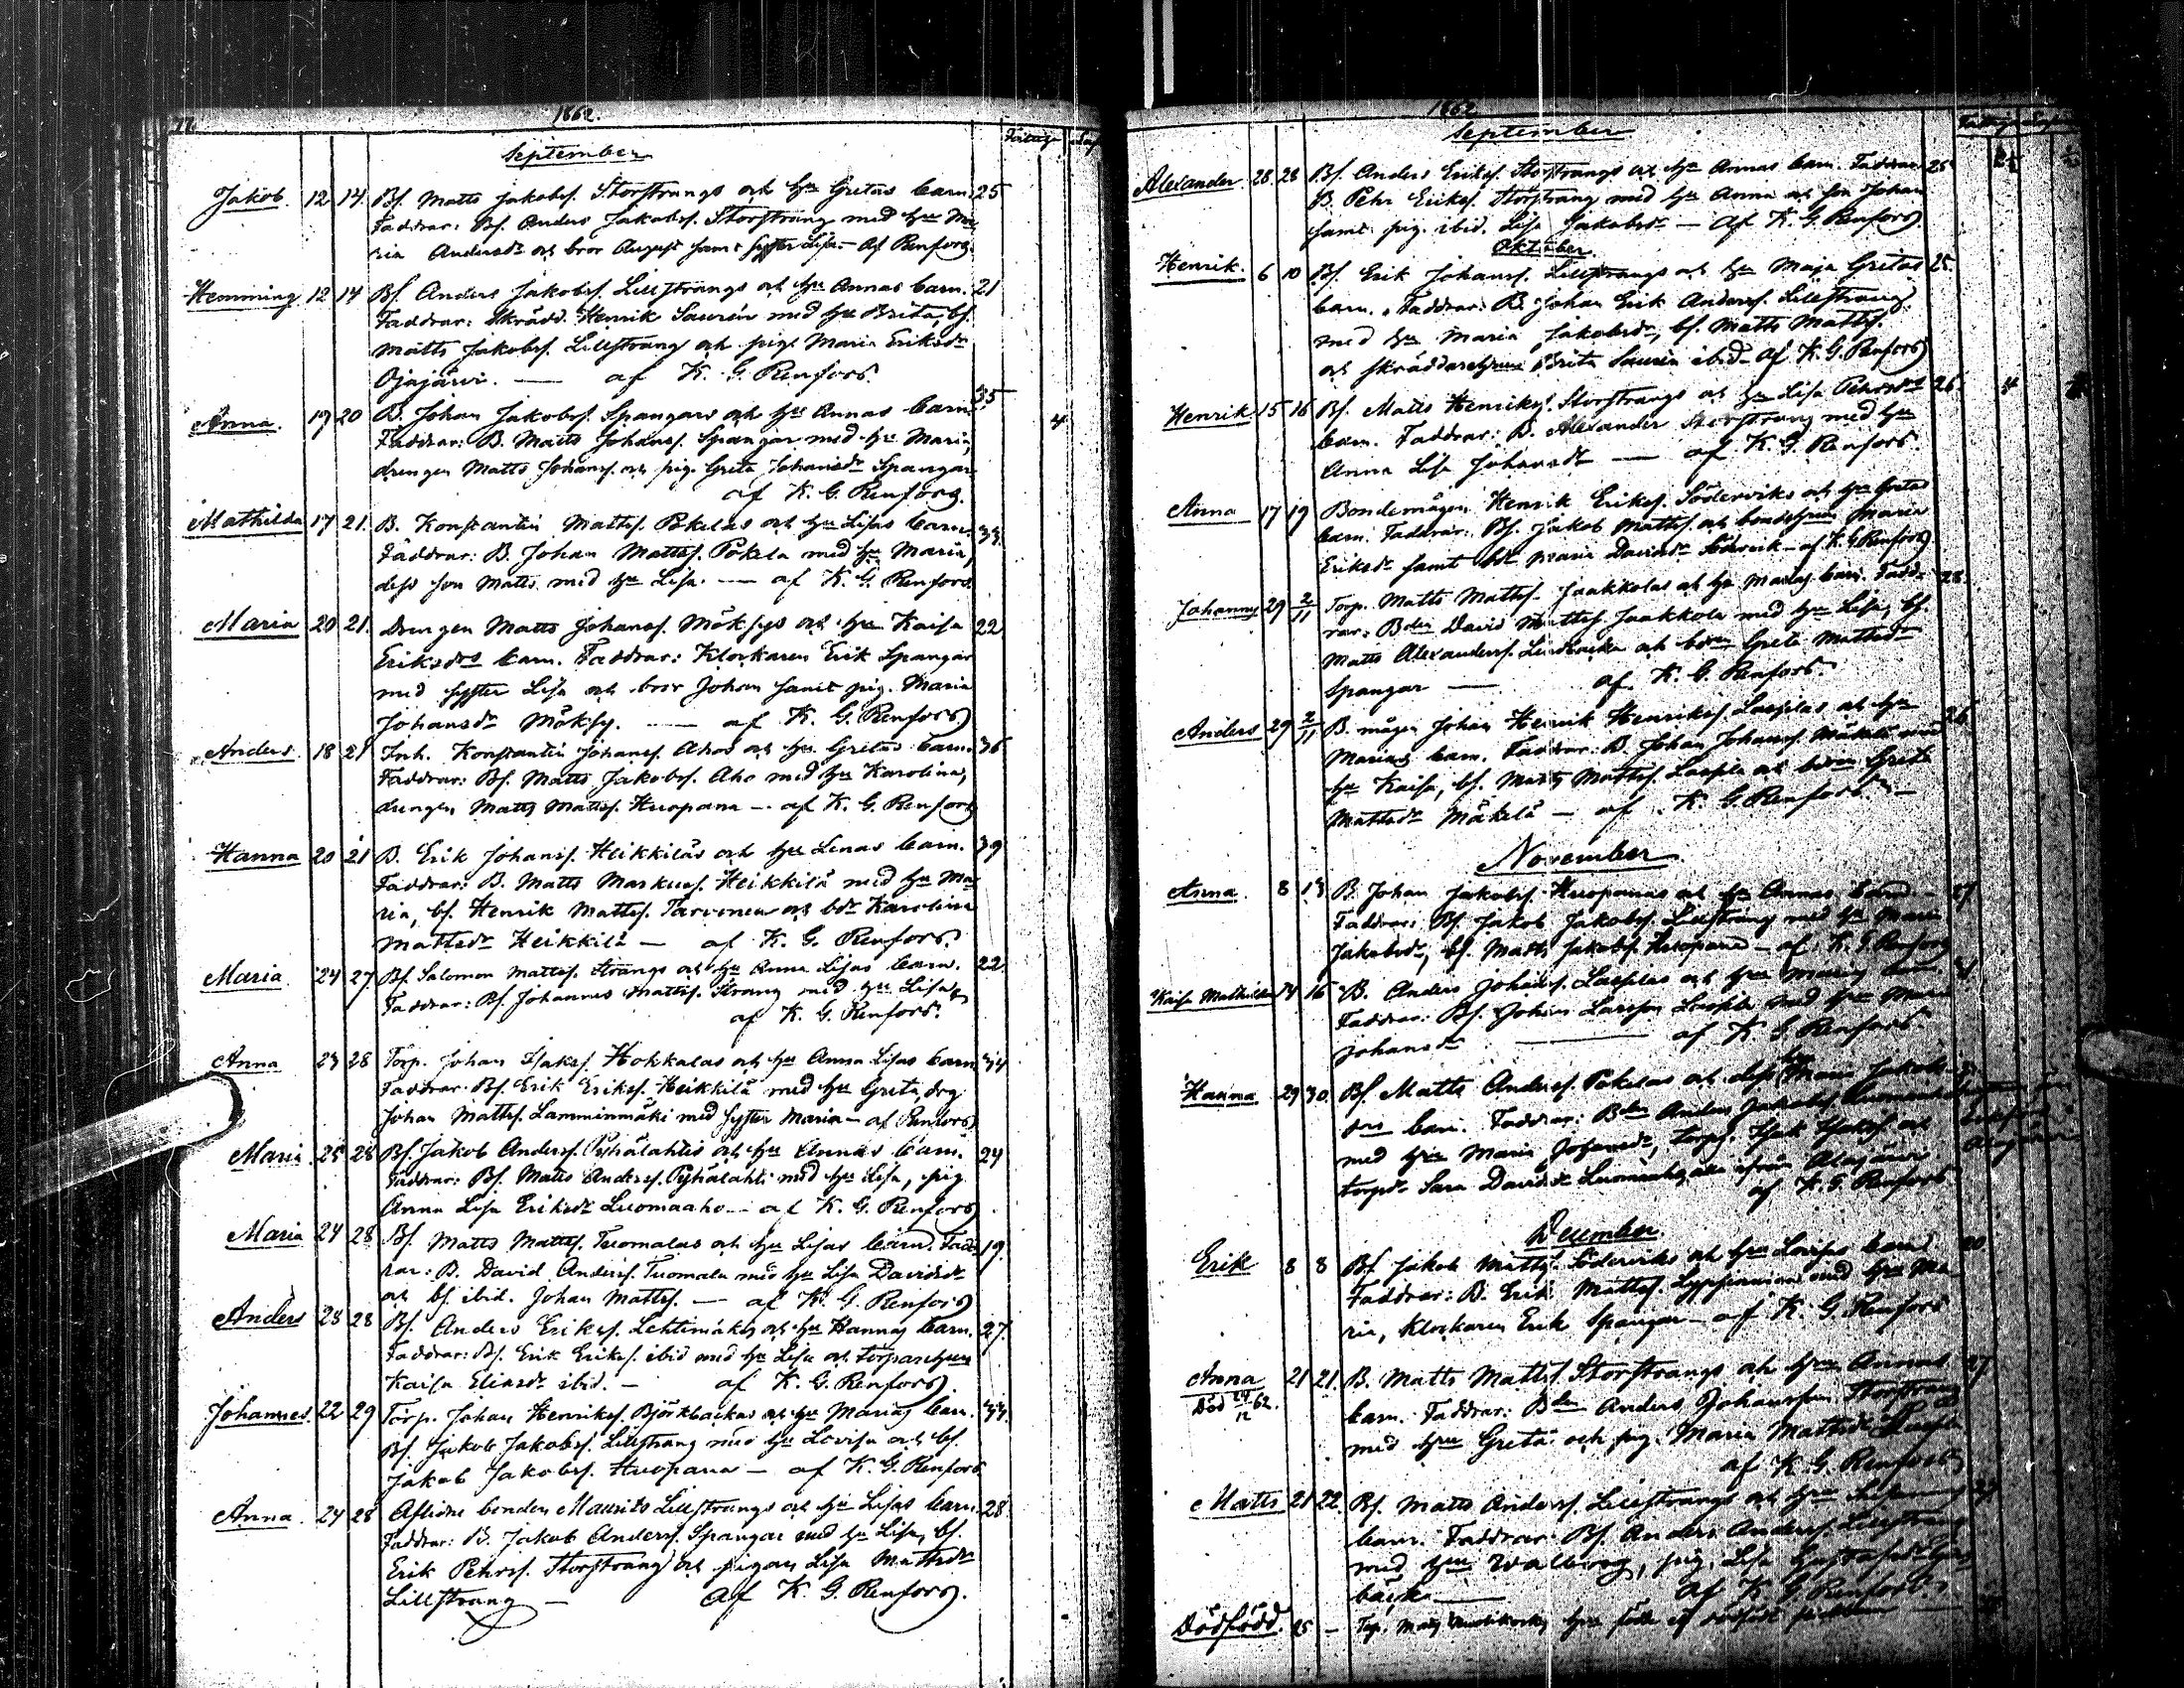 1862.
Förteg
September
Jakob. 12 14. Bs. Matts Jakobss. Storstrangs och hu Gretas barn. 25
Faddrar: Bs. Anders Jakobss. Storstrang med hu Ma-
ria Andersdr och bror August samt syster Lisa. — Af Renfors.
Hemming 12 14 Bs. Anders Jakobss. Lillstrangs och hu Annas barn. 21
Faddrar: Skrädd. Henrik Saurén med hu Brita, bs.
Matts Jakobss. Lillstrang och pig. Maria Eriksdr
Ojajärvi. — af K. G. Renfors.
Anna. 19 20 B. Johan Jakobss. Spangars och hu Annas barn. 35 4
Faddrar: B. Matts Johanss. Spangar med hu Maria,
drengen Matts Johanss. och pig. Greta Johansdr Spangar
af K. G. Renfors.
Mathilda 17 21. B. Konstantin Mattss. Pokelas och hu Lisas barn. 33.
Faddrar: B. Johan Mattss. Pokela med hu Maria,
dess son Matts med hu Lisa. — af K. G. Renfors.
Maria 20 21. Drengen Matts Johanss. Möksys och hu Kaisa 22
Eriksdrs barn. Faddrar: Klockaren Erik Spangar
med syster Lisa och bror Johan samt pig. Maria
Johansdr Möksy. — af K. G. Renfors
Anders 18 21 Inh. Konstantin Johanss. Ahos och hu Gretas barn. 36
Faddrar: Bs. Matts Jakobss. Aho med hu Karolina,
drengen Matts Mattss. Huopana — af K. G. Renfors
Hanna 20 21 B. Erik Johanss. Heikkiläs och hu Lenas barn. 39
Faddrar: B. Matts Markuss. Heikkilä med hu Ma-
ria, bs. Henrik Mattss. Tarvonen och bdr Karolina
Mattsdr Heikkilä — af K. G. Renfors.
Maria 24 27 Bs. Salomon Mattss. Strangs och hu Anna Lisas barn. 22
Faddrar: Bs. Johannes Mattss. Strang med hu Lisa,
af K. G. Renfors.
Anna 23 28 Torp. Johan Isakss. Hokkalas och hu Anna Lisas barn 34
Faddrar: Bs. Erik Erikss. Heikkilä med hu Greta, drg
Johan Mattss. Lamminmäki med syster Maria — af Renfors
Maria 25 28 Bs. Jakob Anderss. Pyhälahtis och hu Annas barn. 24
Faddrar: Bs. Matts Anderss. Pyhälahti med hu Lisa, pig.
Anna Lisa Eriksdr Luomaaho — af K. G. Renfors
Maria 24 28 Bs. Matts Mattss. Tuomalas och hu Lisas barn. Fadd- 19.
rar: B. David Anderss. Tuomala med hu Lisa Davidsdr
och bs. ibid. Johan Mattss. — af K. G. Renfors
Anders 23 28 Bs. Anders Erikss. Lehtimäkis och hu Hannas barn. 27
Faddrar: Bs. Erik Erikss. ibid med hu Lisa och torparehun
Kaisa Eliasdr ibid. — af K. G. Renfors.
Johannes 22 29 Torp. Johan Henrikss. Björkbackas och hu Marias barn. 33.
Bs. Jakob Jakobss. Lillstrang med hu Lovisa och bs.
Jakob Jakobss. Huopana — af K. G. Renfors
Anna. 24 28 Aflidne bonden Maurits Lillstrangs och hu Lisas barn. 28
Faddrar: B. Jakob Anderss. Spangar med hu Lisa, bs.
Erik Pehrss. Storstrang och pigan Lisa Mattsdr
Lillstrang — Af K. G. Renfors.
1862
September
Alexander 28 28 Bs. Anders Erikss. Storstrangs och hu Annas barn. Faddrar 25
B. Pehr Erikss. Storstrang med hu Anna och son Johan
samt pig. ibid. Lisa Jakobsdr — Af K. G. Renfors
Oktober.
Henrik. 6 10 Bs. Erik Johanss. Lillstrangs och hu Maja Gretas 25.
barn. Faddrar: B. Johan Erik Anderss. Lillstrang
med hu Maria Jakobsdr, bs. Matts Mattss.
och skräddarehun Brita Saurén ibid — af K. G. Renfors
Henrik 15 16 Bs. Matts Henrikss. Storstrangs och hu Lisa Pehrsdrs 26. 4
barn. Faddrar: B. Alexander Storstrang med hu
Anna Lisa Johansdr — af K. G. Renfors.
Anna 17 19 Bondemågen Henrik Erikss. Söderviks och hu Gretas
barn. Faddrar: Bs. Jakob Mattss. och bondehun Maria
Eriksdr samt bdr Maria Davidsdr Södervik — af K. G. Renfors
Johannes 29 2/11 Torp. Matts Mattss. Jaakkolas och hu Marias barn. Fadd- 28.
rar: Bden David Mattss. Jaakkola med hu Lisa, bs.
Matts Alexanderss. och bdr Greta Mattsdr
Spangar — af K. G. Renfors.
Anders 29 2/11 B. mågen Johan Henrik Henrikss. Laspilas och hu 26
Marias barn. Faddrar: B. Johan Johanss. Mäkelä med
hu Kaisa, bs. Matts Mattss. Laspila och Greta
Mattsdr Mäkelä — af K. G. Renfors. —
November
Anna. 8 13 B. Johan Jakobss. Huopanas och hu Annas barn. — 27
Faddrar: Bs. Jakob Jakobss. Lillstrang med hu Maria
Jakobsdr, bs. Matts Jakobss. Huopana — af K. G. Renfors
Kaisa Mathilda 14 16 B. Anders Johanss. Laspilas och hu Marias barn
Faddrar: Bs. Johan Larsson Laspila med hu Maria
Johansdr — af K G Renfors.
Hanna 29 30. Bs. Matts Anderss. Pokelas och dess hu Maria Jakobs-
drs barn. Faddrar: Bden Anders Jakobss.
med hu Maria Josefsdr, torps. Isak Isakss. och
torpdr Sara Davidsdr från Alajärvi
af K. G. Renfors
December.
Erik 8 8 Bs. Jakob Mattss. Söderviks och hu Lovisas barn 20
Faddrar: B. Erik Mattss. med hu Ma-
ria, Klockaren Erik Spangar — af K. G. Renfors
Anna 21 21. B. Matts Mattss. Storstrangs och hu Annas 27
Död 24/12 62. barn. Faddrar: Bden Anders Johansson Storstrang
med hu Greta och pig. Maria Mattsdr
af K. G. Renfors
Matts 21 22. Bs. Matts Anderss. Lillstrangs och hu
barn. Faddrar: Bs. Anders Anderss. Lillstrang
med hu Walborg, pig. Lisa
bäck — af K. G. Renfors.
Dödfödd. 25 — Torp. Matts hu födde ett dödfödt